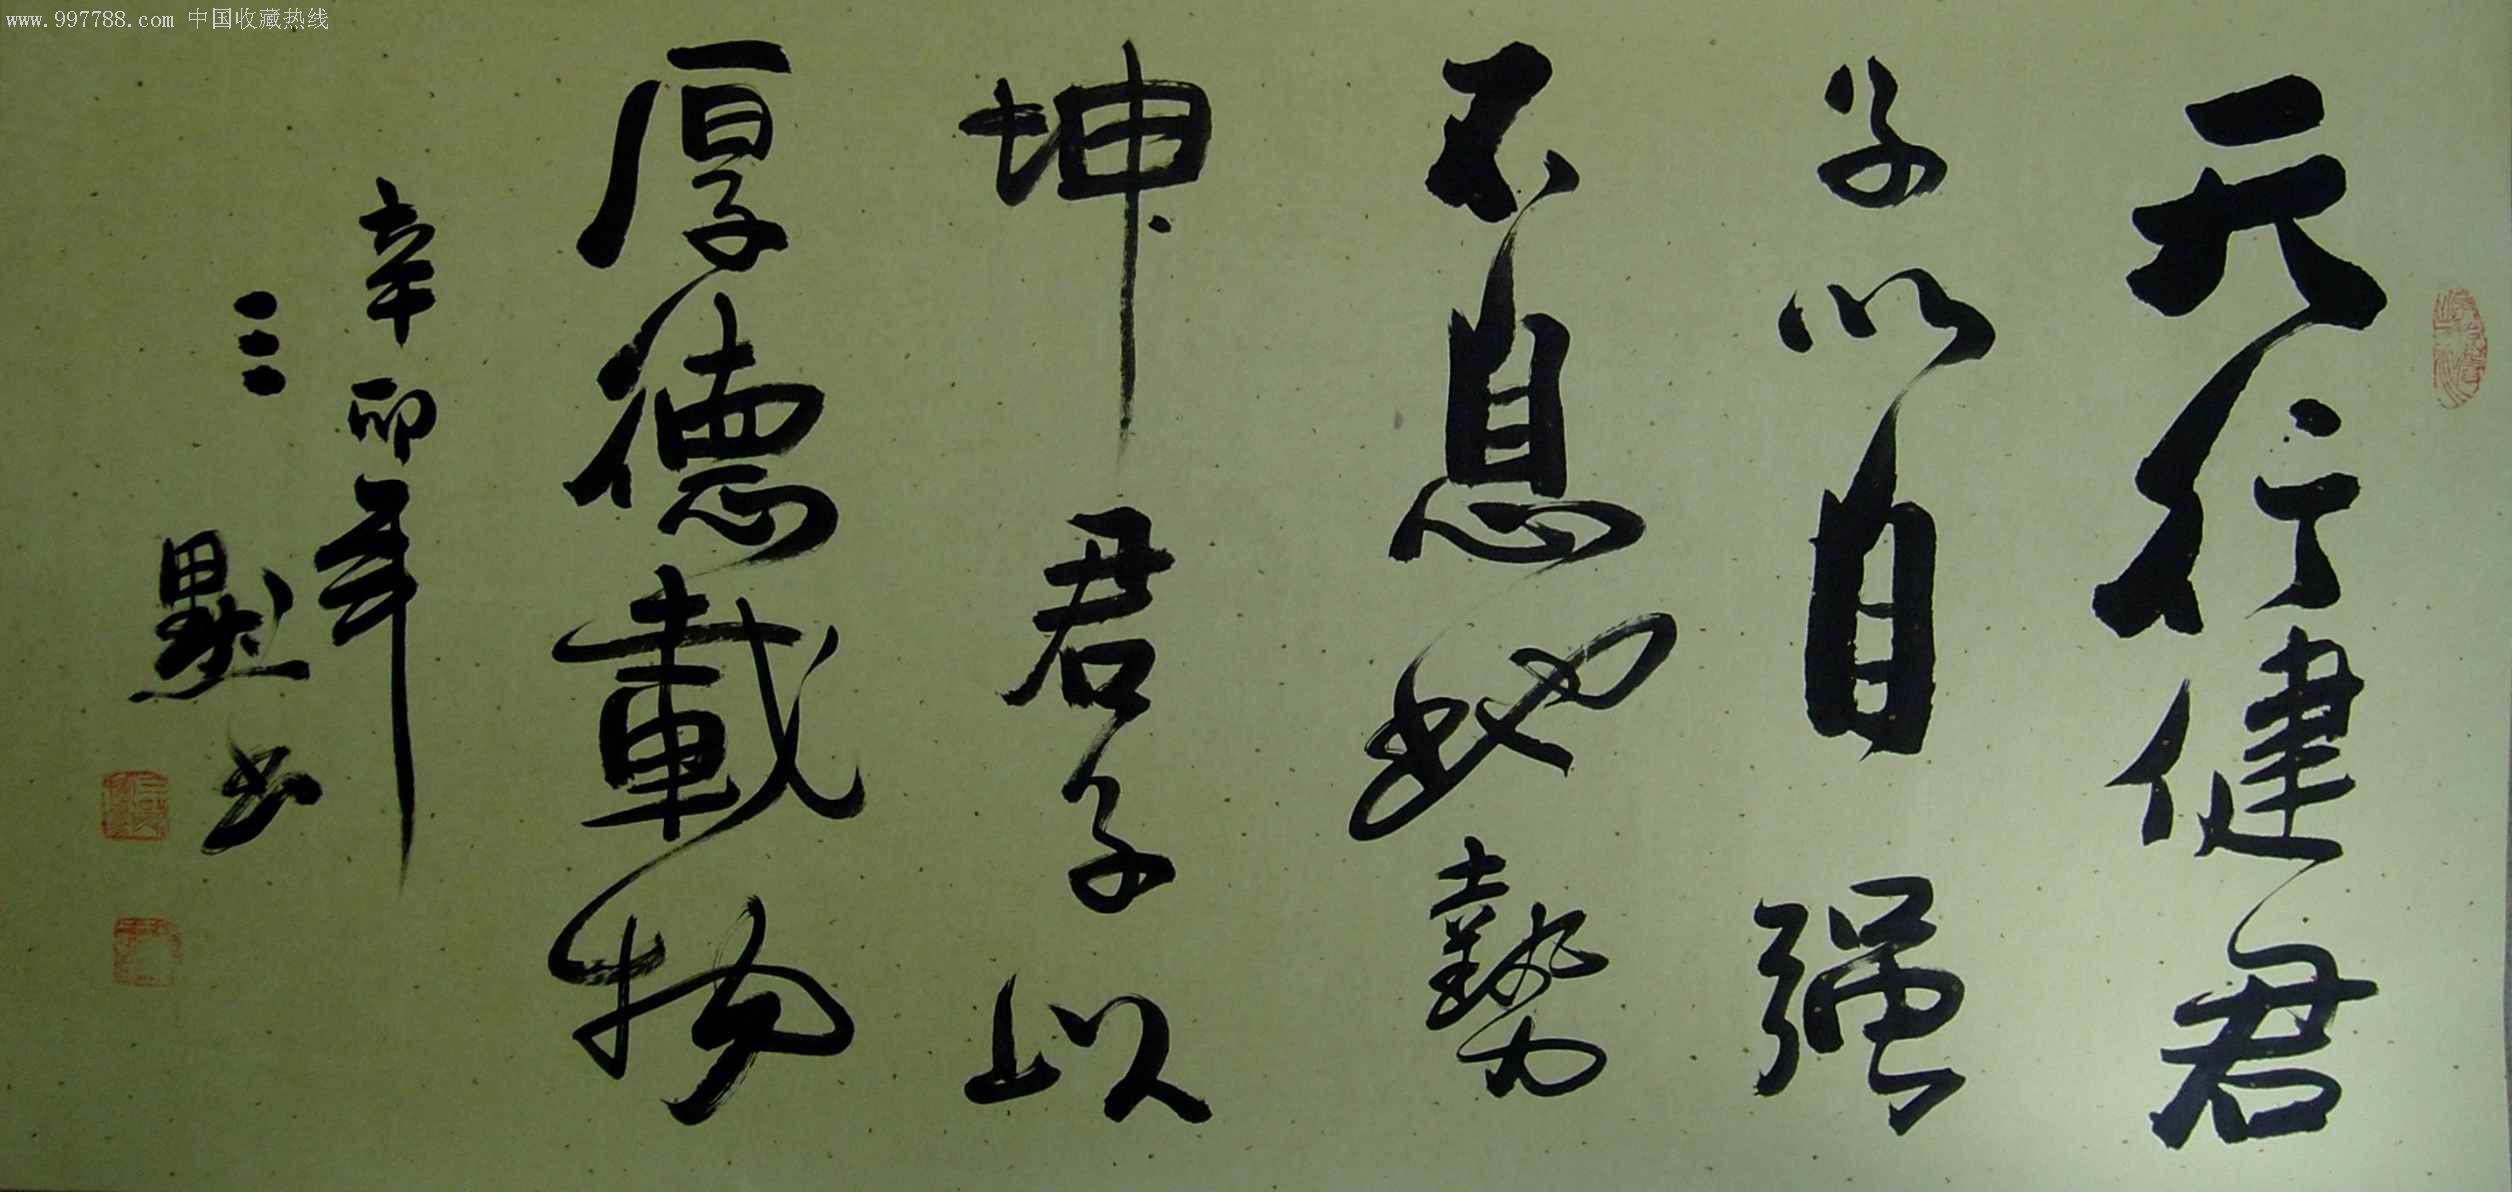 www.997788.com 中国收藏热线
天行健君
子以自强
不息地勢
坤君子以
厚德載物
辛卯年
三默书